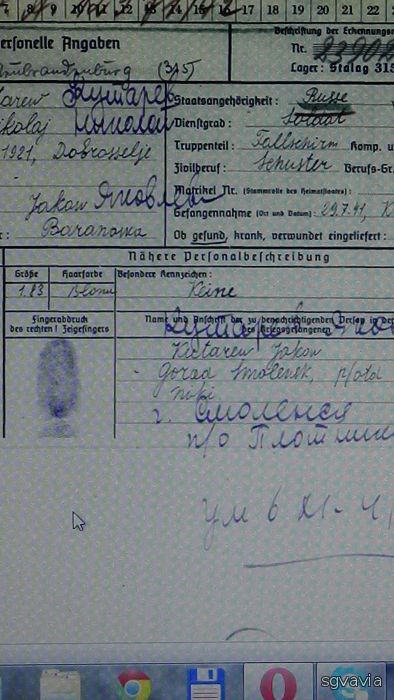 7 8 9 10 11 12 13 14 15 16 17 18 19 20 21 22
Personelle Angaben
Beschriftung der Erkennungsm
Nr. 23902
Lager: Stalag 315
(315)
Кутарев
Staatsangehörigkeit: Russe
Nikolaj
Николай
Dienstgrad: Soldat
1921, Dobrosselje
Truppenteil: Fallschirm Komp. u
Zivilberuf: Schuster Berufs-Gr.
Matrikel Nr. (Stammrolle des Heimatstaates):
Jakow
Gefangennahme (Ort und Datum): 29.7.41, K
Baranowa
Ob gesund, krank, verwundet eingeliefert:
Nähere Personalbeschreibung
Größe Haarfarbe Besondere Kennzeichen:
1.83 Blond Keine
Fingerabdruck
des rechten! Zeigefingers
Name und Anschrift der zu benachrichtigenden Person in der
des Kriegsgefangenen
Kutarew Jakow
Gorad Smolensk,
г. Смоленск
п/о
ум 6 XI - 4
sgvavia